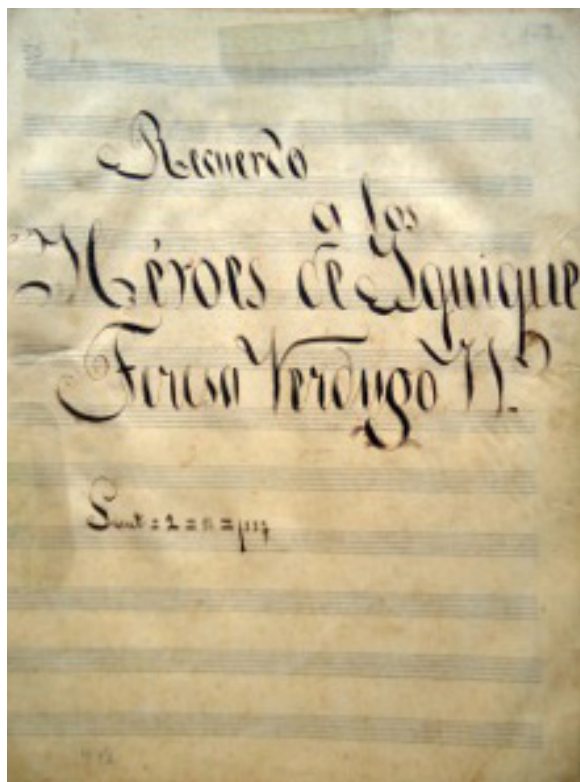 Recuerdo
a los
Héroes de Iquique
Teresa Verdugo N.